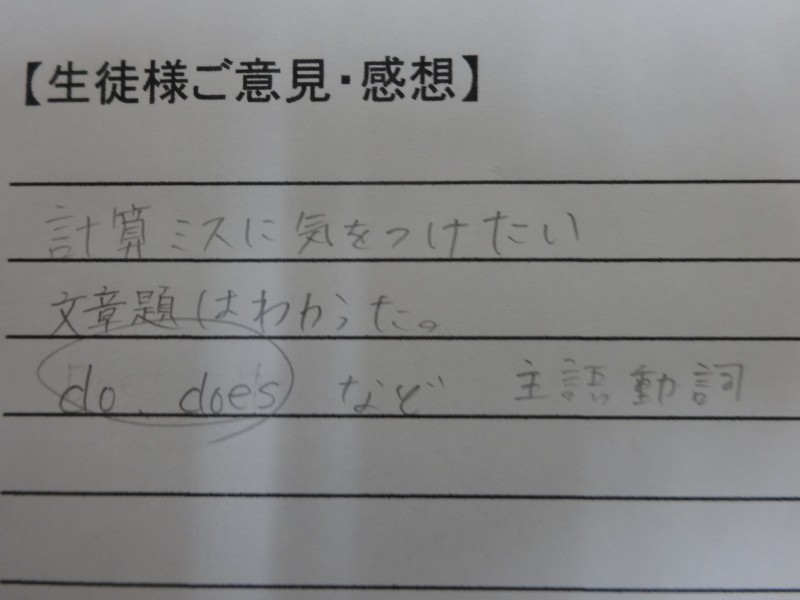 【生徒様ご意見・感想】
計算ミスに気をつけたい
文章題はわかった。
do、does など 主語動詞